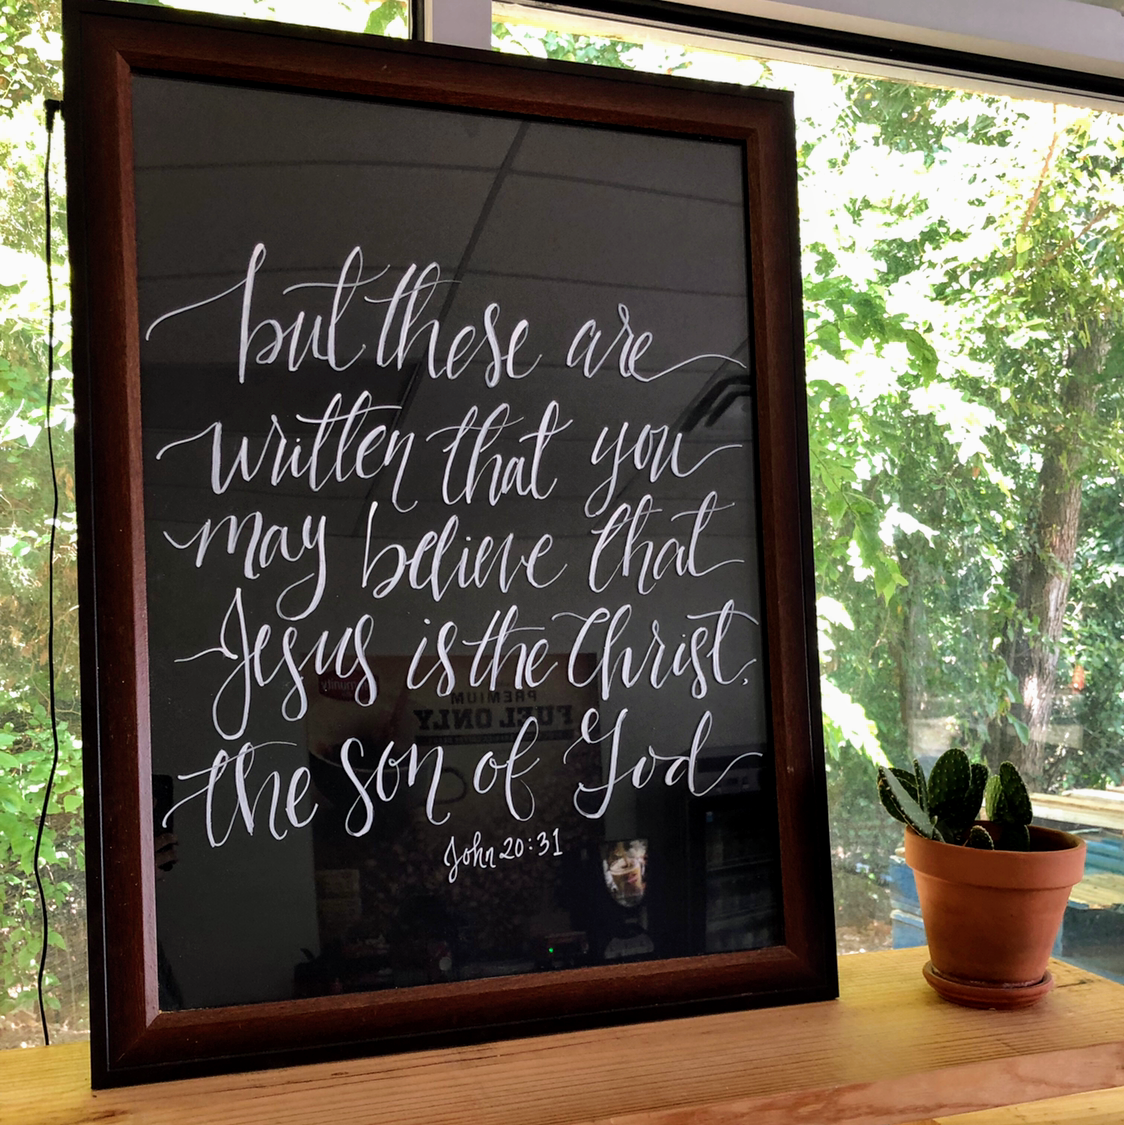 but these are
written that you
may believe that
Jesus is the Christ,
the son of God
John 20:31
PREMIUM
FUEL ONLY